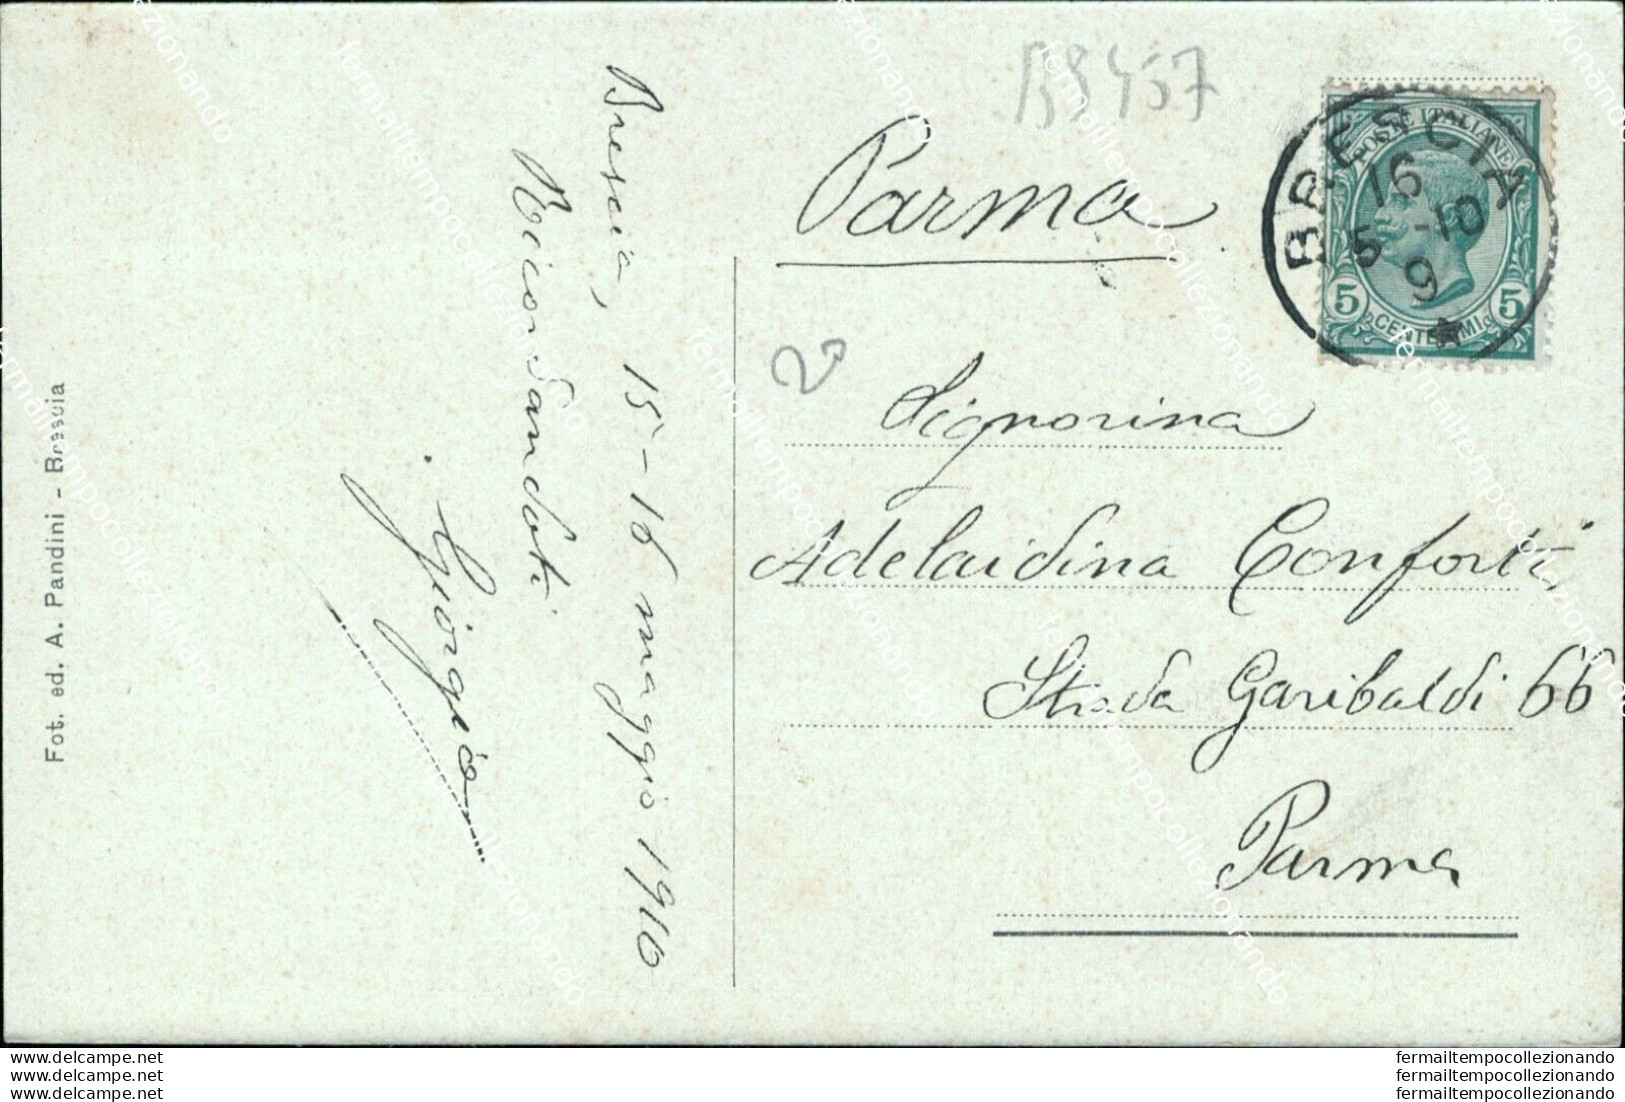 B8457
BRESCIA
16
5 -10
9
POSTE ITALIANE
5 5
CENTESIMI
Parma
20
Signorina
Adelaidina Conforti
Strada Garibaldi 66
Parma
Brescia, 15-16 maggio 1910
Ricordandoti
Giorgio
Fot. ed. A. Pandini - Brescia
fermailtempocollezionando
www.delcampe.net fermailtempocollezionando
www.delcampe.net fermailtempocollezionando
www.delcampe.net fermailtempocollezionando